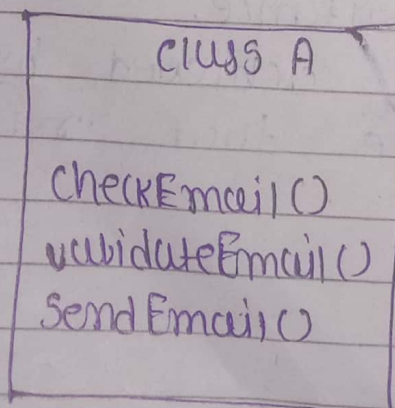 Class A
checkEmail()
validateEmail()
sendEmail()